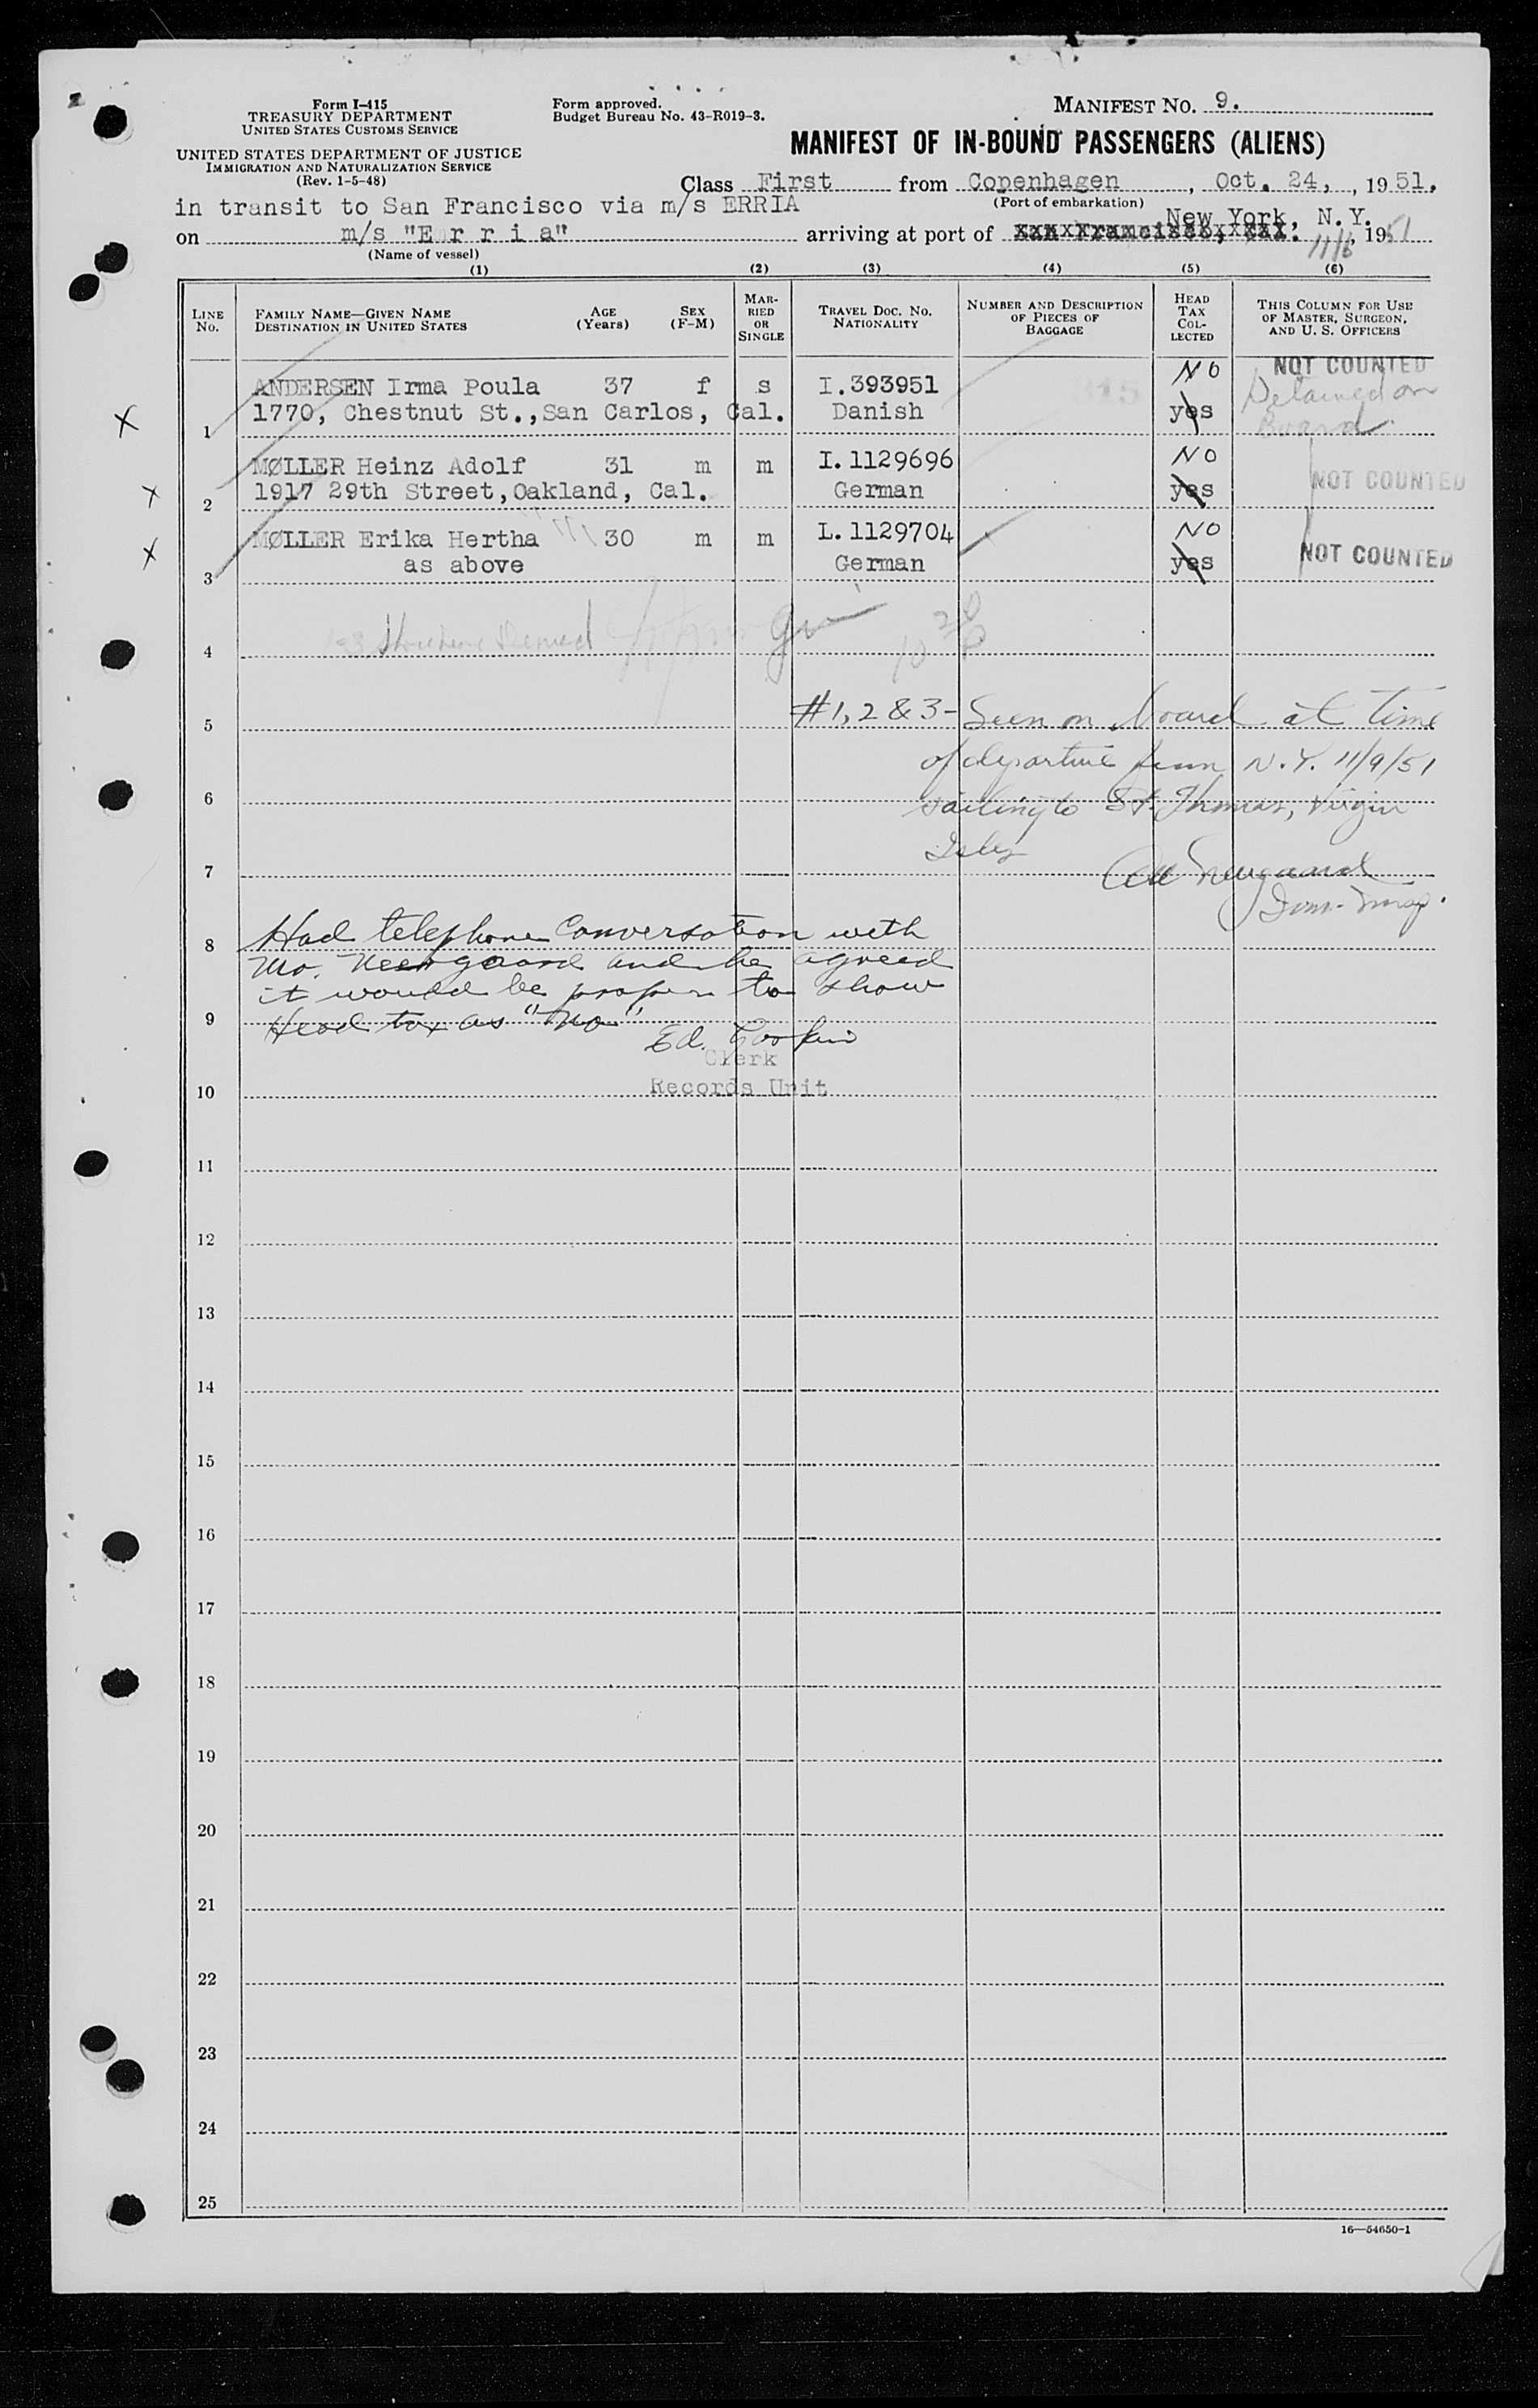 Form I-415
TREASURY DEPARTMENT
UNITED STATES CUSTOMS SERVICE
UNITED STATES DEPARTMENT OF JUSTICE
IMMIGRATION AND NATURALIZATION SERVICE
(Rev. 1-5-48)
Form approved.
Budget Bureau No. 43-R019-3.
MANIFEST NO. 9.
MANIFEST OF IN-BOUND PASSENGERS (ALIENS)
Class First from Copenhagen, Oct. 24, , 1951.
(Port of embarkation)
in transit to San Francisco via m/s ERRIA
New York, N.Y.
on m/s "E r r i a" arriving at port of San Francisco, Cal. 11/6, 1951
(Name of vessel)
(1) (2) (3) (4) (5) (6)
LINE NO. FAMILY NAME—GIVEN NAME DESTINATION IN UNITED STATES AGE (Years) SEX (F-M) MARRIED OR SINGLE TRAVEL DOC. NO. NATIONALITY NUMBER AND DESCRIPTION OF PIECES OF BAGGAGE HEAD TAX COLLECTED THIS COLUMN FOR USE OF MASTER, SURGEON, AND U. S. OFFICERS
ANDERSEN Irma Poula 37 f s I.393951 NO NOT COUNTED
1 1770, Chestnut St.,San Carlos, Cal. Danish yes Detained on Board
MØLLER Heinz Adolf 31 m m I.1129696 NO
2 1917 29th Street,Oakland, Cal. German yes NOT COUNTED
MØLLER Erika Hertha 30 m m L.1129704 NO
3 as above German yes NOT COUNTED
4
5 #1, 2 & 3- Seen on board at time
of departure from N.Y. 11/9/51
6 sailing to St. Thomas, Virgin
Isles
7
8 Had telephone conversation with
Mr. Neergaard and he agreed
it would be proper to show
9 Head tax as "No"
Ed.
Clerk
10 Records Unit
11
12
13
14
15
16
17
18
19
20
21
22
23
24
25
16—54650-1